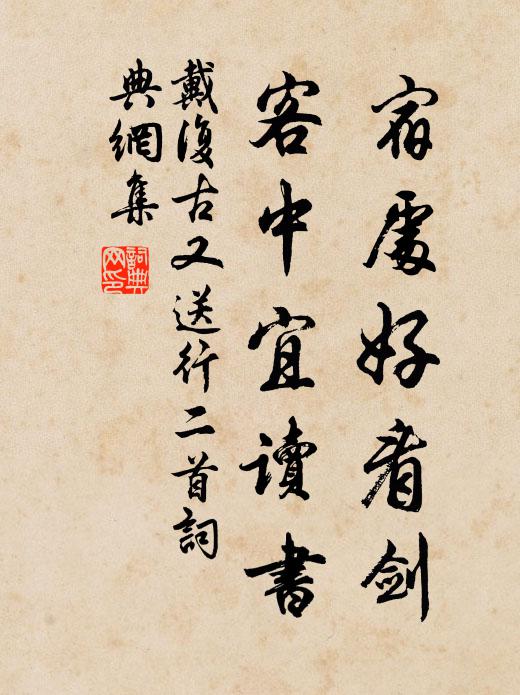 宿處好看劍
客中宜讀書
戴復古又送行二首詞
典網集
詞典
网印